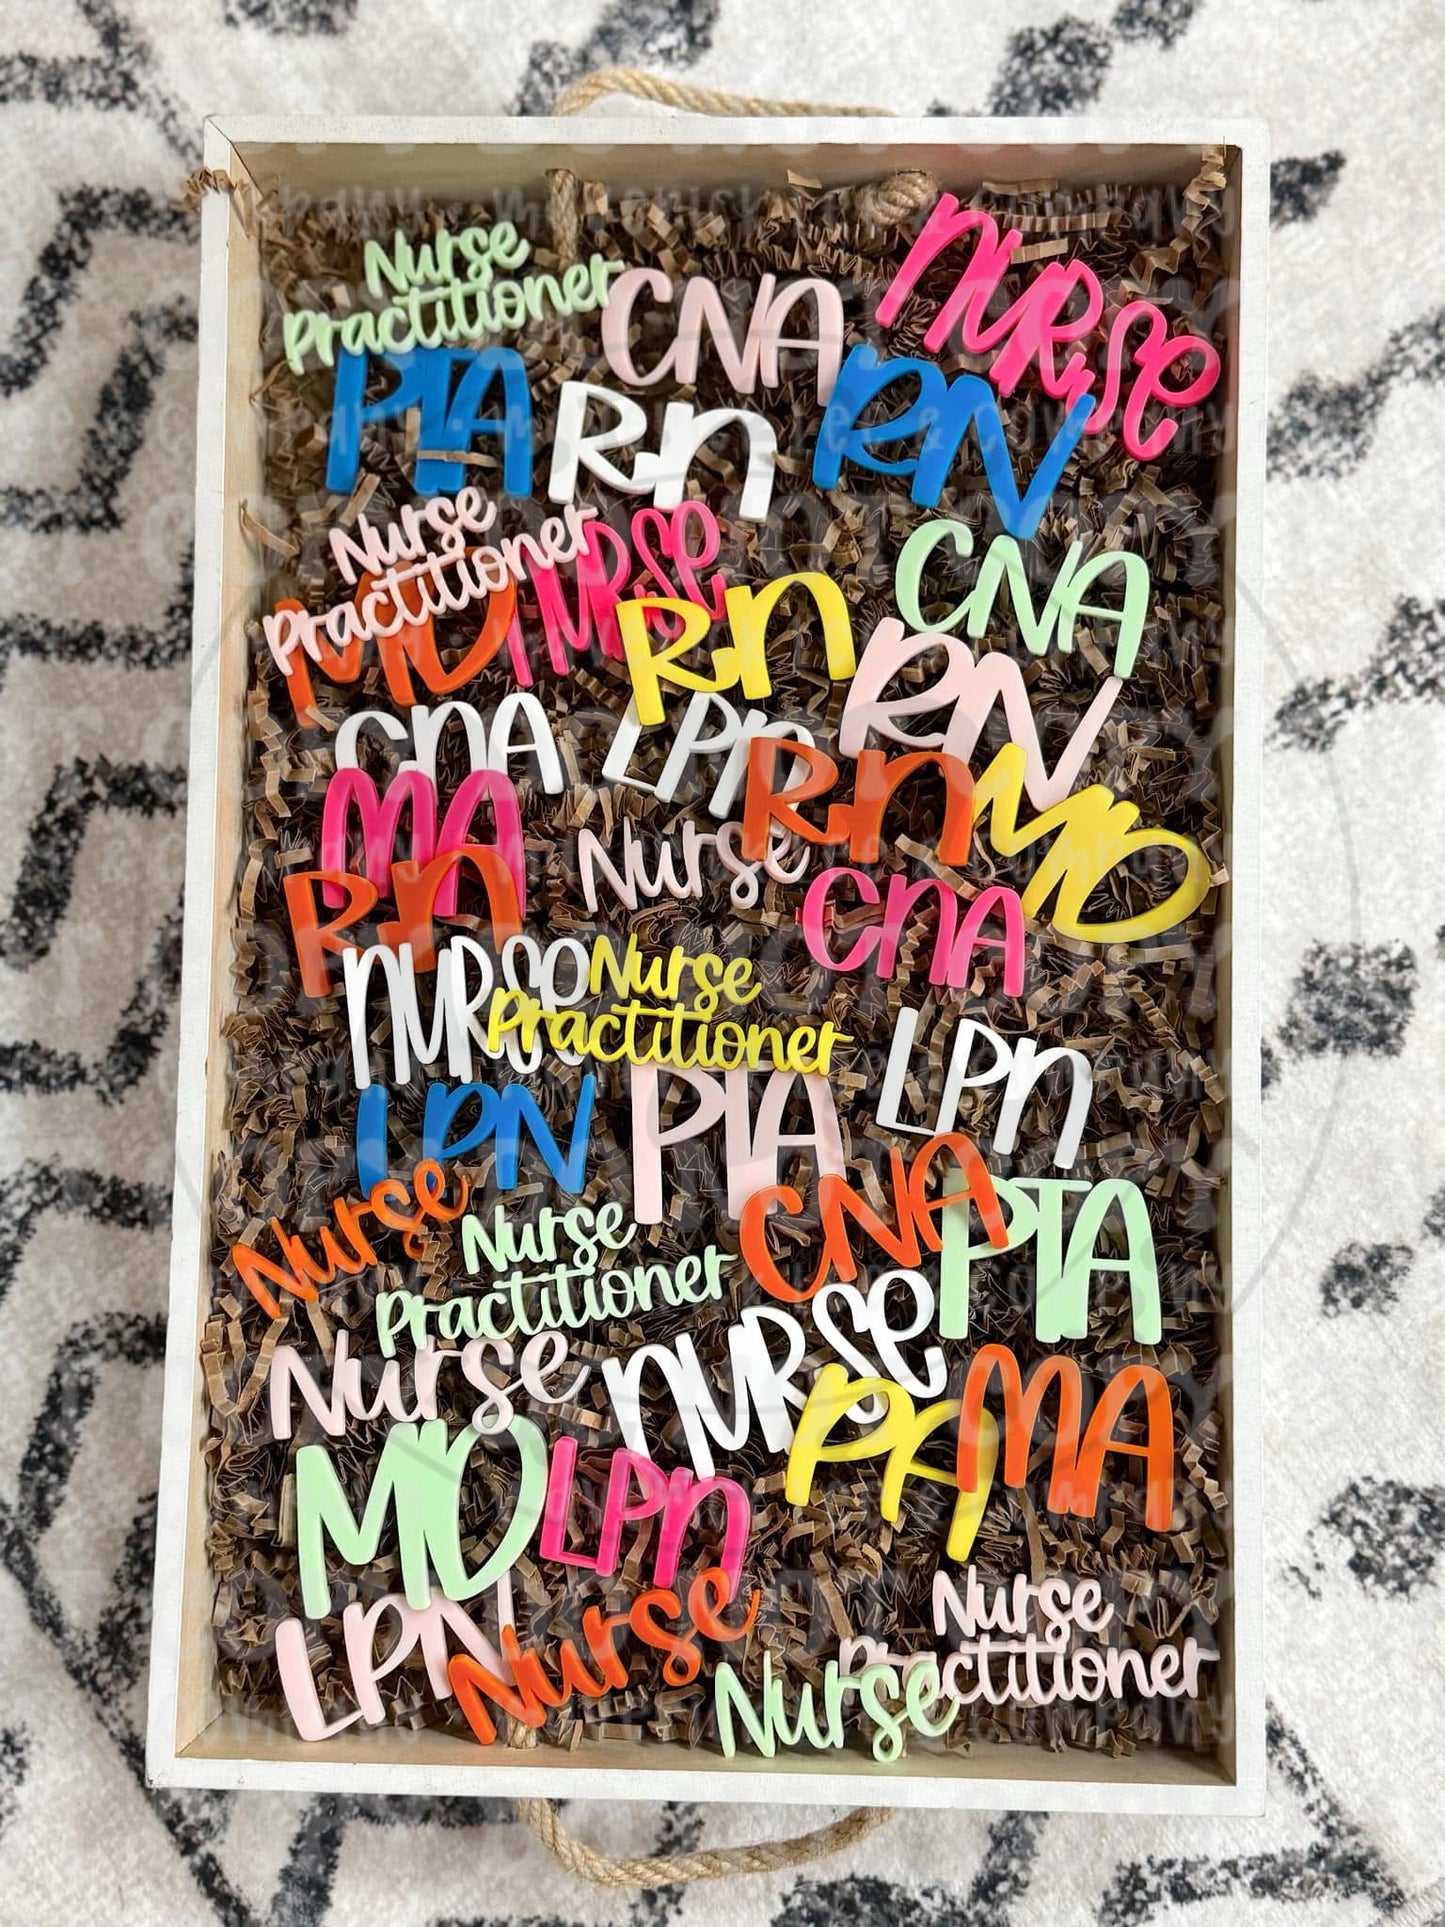 Nurse
Practitioner
CNA
NURSE
PTA
Rn
RN
Nurse
Practitioner
MD
NURSE
Rn
CNA
RN
CNA
LPN
Rn
MD
MA
Nurse
CNA
Rn
NURSE
Nurse
Practitioner
LPN
LPN
PTA
CNA
PTA
Nurse
Nurse
Practitioner
Nurse
NURSE
PA
MA
MD
LPN
LPN
Nurse
Nurse
Practitioner
Nurse